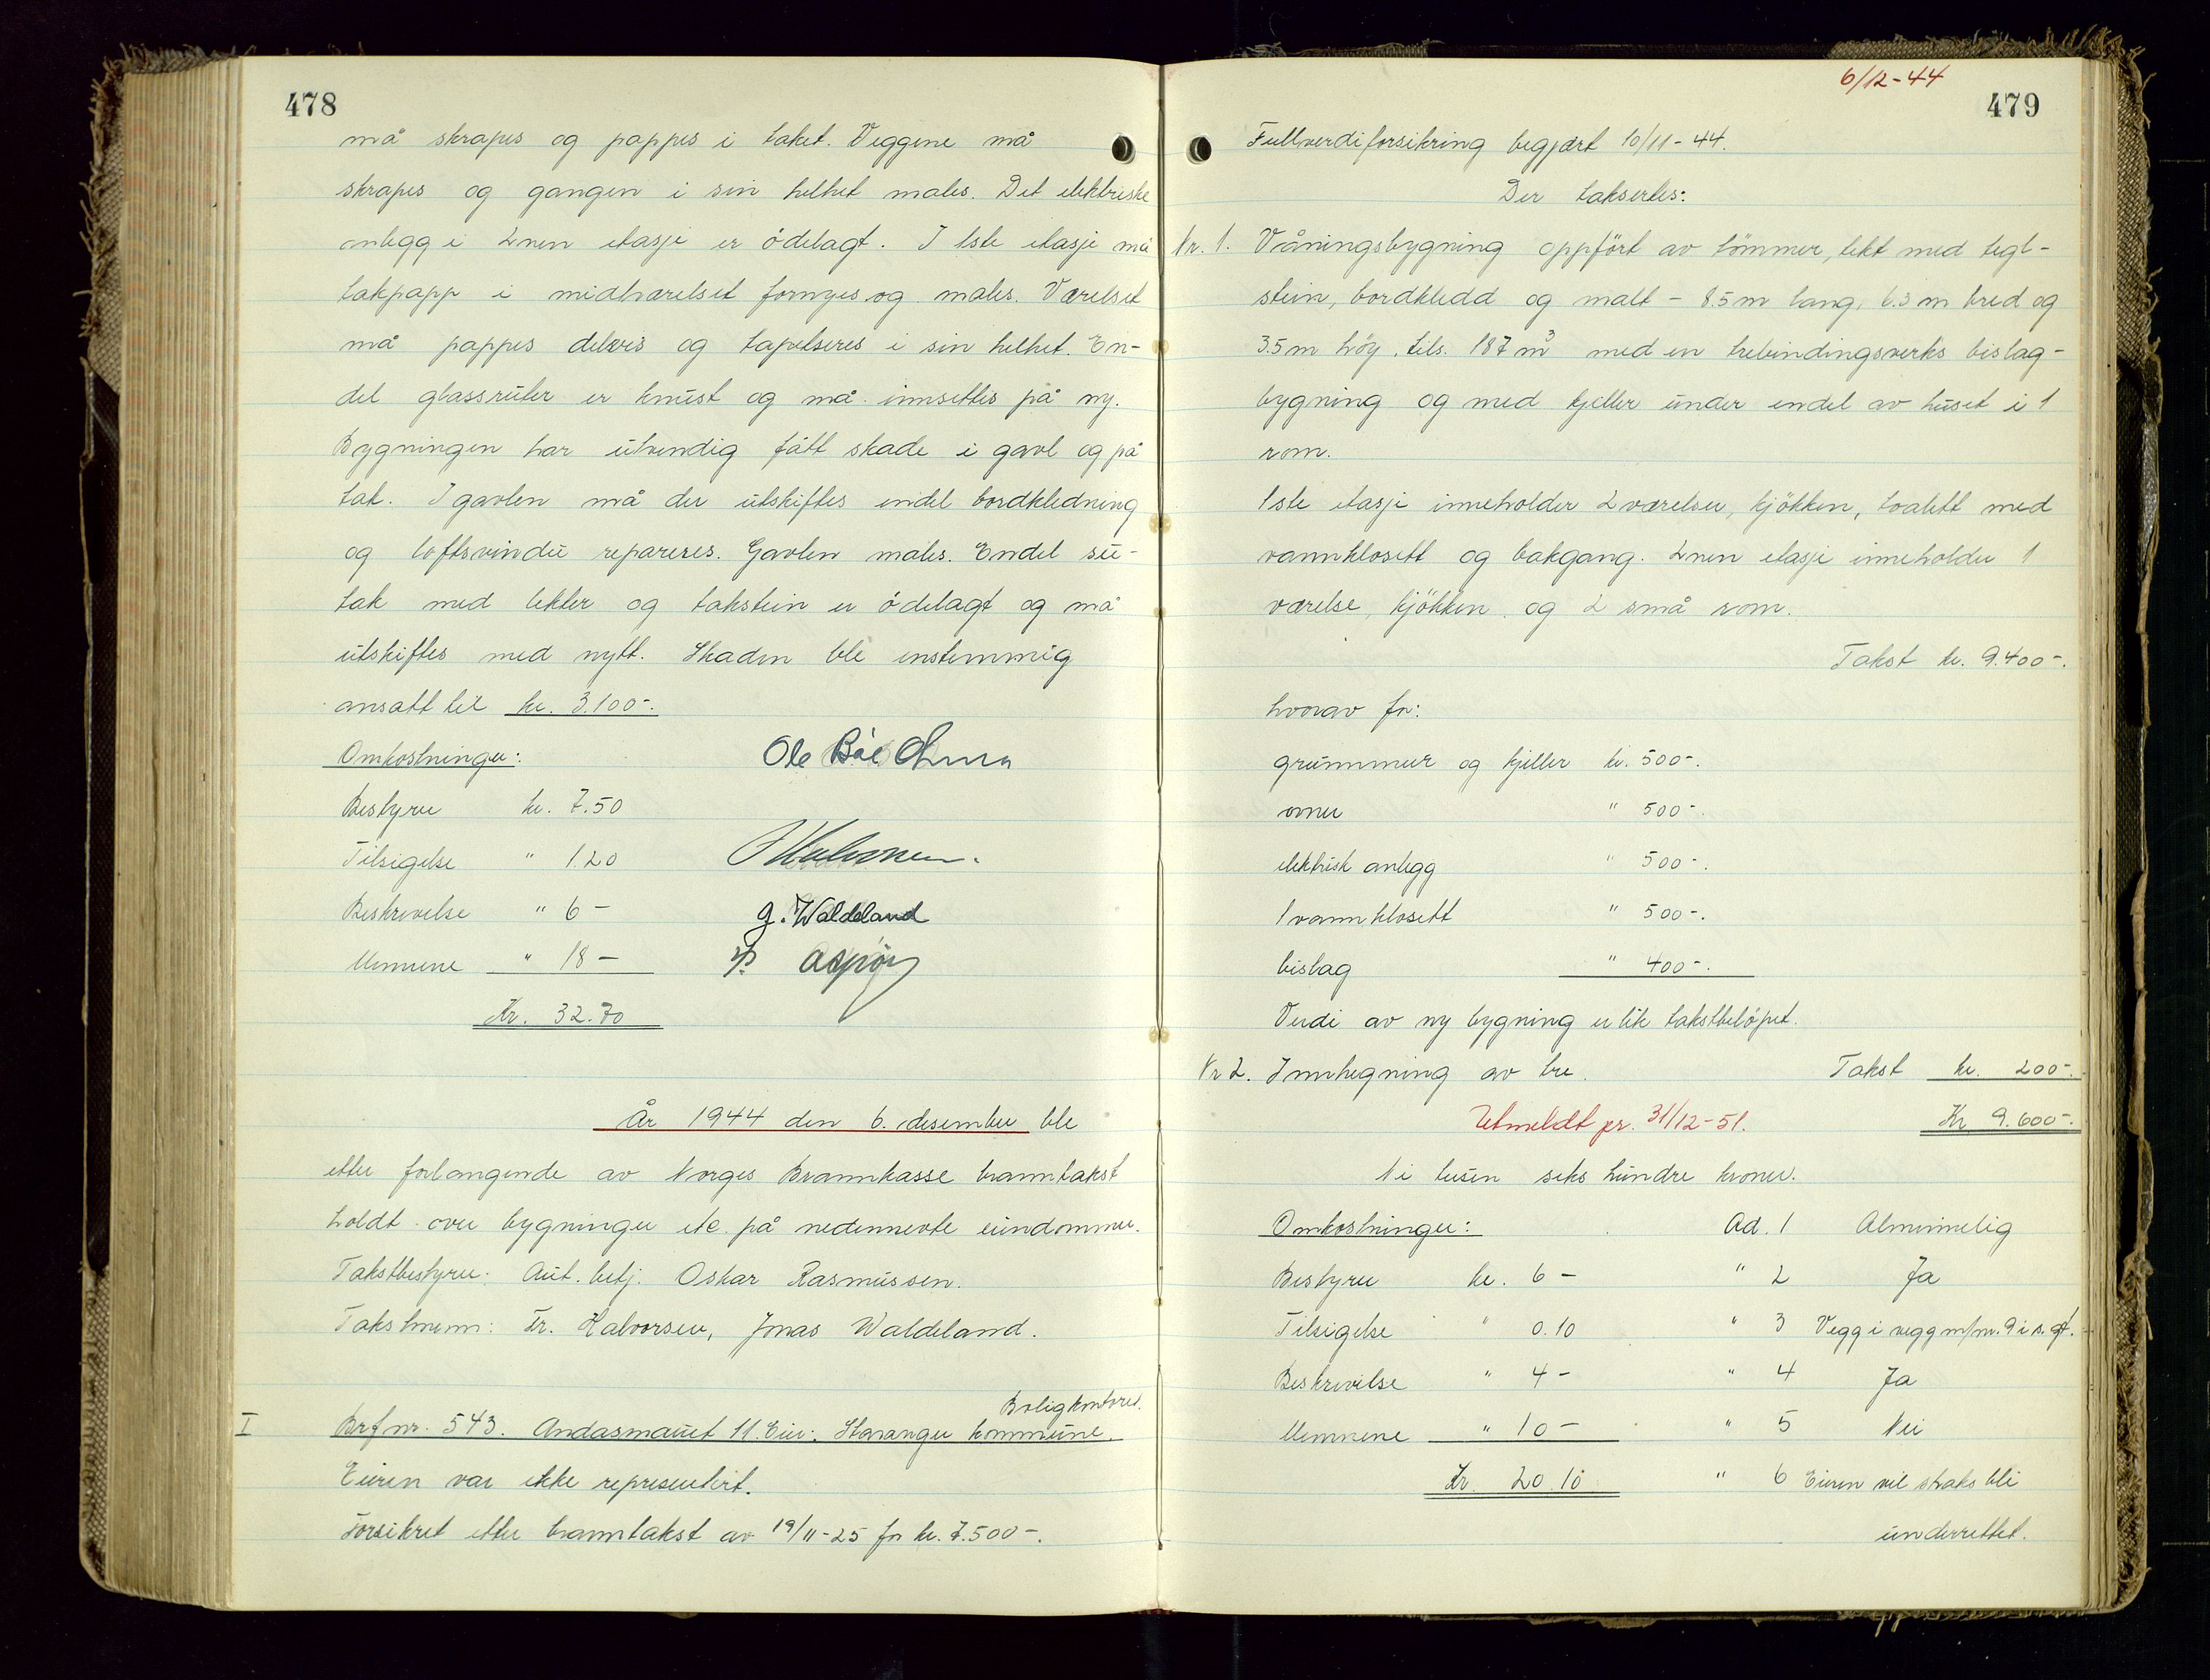 478
må skrapes og pappes i taket. Veggene må
skrapes og gangen i sin helhet males. Det elektriske
anlegg i 2nen etasje er ödelagt. I 1ste etasje må
takpapp i midtværelset fornyes og males. Værelset
må pappes delvis og tapetseres i sin helhet. En-
del glassruter er knust og må innsettes på ny.
Bygningen har utvendig fått skade i gavl og på
tak. I gavlen må der utskiftes endel bordkledning
og loftsvindu repareres. Gavlen males. Endel su-
tak med lekter og takstein er ödelagt og må
utskiftes med nytt. Skaden ble enstemmig
ansatt til kr. 3.100-.
Omkostninger:
Ole Bøe
Bestyrer kr. 7.50
Tilsigelse " 1.20
Beskrivelse " 6-
J. Waldeland
Mennene " 18-
Kr. 32.70
År 1944 den 6. desember ble
etter forlangende av Norges Brannkasse branntakst
holdt over bygninger etc. på nedennevnte eiendommer.
Takstbestyrer: Aut. betj. Oskar Rasmussen.
Takstmenn: Fr. Halvorsen, Jonas Waldeland.
Boligkontoret.
I Brf nr. 543. Andasmauet 11. Eier: Stavanger kommune.
Eieren var ikke representert.
Forsikret etter branntakst av 19/11-25 for kr. 7.500-.
6/12-44
479
Fullverdiforsikring begjært 10/11-44.
Der taksertes:
Nr. 1. Våningsbygning oppfört av tömmer, tekt med tegl-
stein, bordkledd og malt - 8.5 m lang, 6.3 m bred og
3.5 m höy, tils. 187 m³ med en trebindingsverks bislag-
bygning og med kjeller under endel av huset i 1
rom.
1ste etasje inneholder 2 værelser, kjökken, toalett med
vannklosett og bakgang. 2nen etasje inneholder 1
værelse, kjökken og 2 små rom.
Takst kr. 9.400-.
hvorav for:
grunnmur og kjeller kr. 500-.
ovner " 500-.
elektrisk anlegg " 500-.
1 vannklosett " 500-.
bislag " 400-.
Verdi av ny bygning er lik takstbelöpet.
Nr 2. Innhegning av tre. Takst kr. 200-.
Utmeldt pr. 31/12-51. Kr. 9.600-.
Ni tusen seks hundre kroner.
Omkostninger: Ad. 1 Alminnelig
Bestyrer kr. 6- " 2 Ja
Tilsigelse " 0.10 " 3 Vegg i vegg m/nr. 9 i s. gt.
Beskrivelse " 4- " 4 Ja
Mennene " 10- " 5 Nei
Kr. 20.10 " 6 Eieren vil straks bli
underrettet.